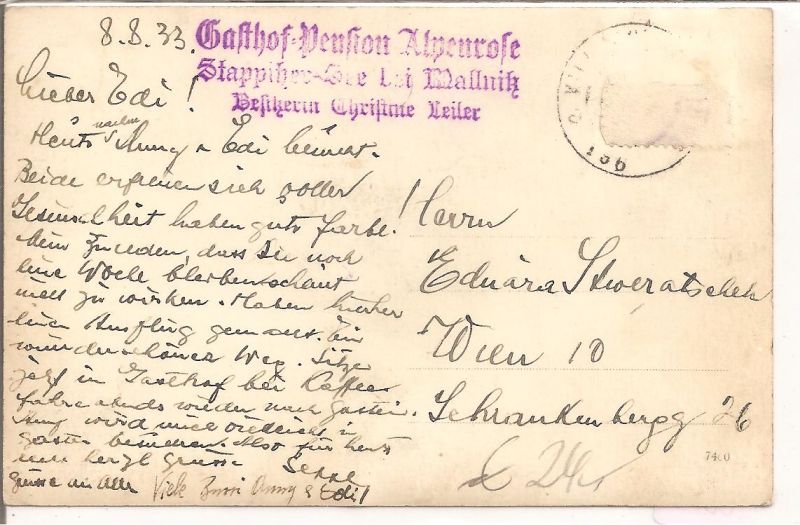 8.8.33.
Gasthof-Pension Alpenrose
Stappitzer-See bei Mallnitz
Besitzerin Christine Leiler
Lieber Edi!
Heute Anny & Edi besucht.
Beide erfreuen sich voller
Gesundheit haben gute Farbe!
dass Sie noch
eine Woche bleiben scheint
zu wirken. Haben hierher
einen Ausflug gemacht. Ein
wunderschöner Weg. Sitze
jetzt im Gasthof bei Kaffee
fahre abends wieder nach Gastein.
Anny wird mich in
Gastein besuchen. Also für heute
herzl Grüsse
Grüsse an alle Viele Bussi Anny & Edi!
Herrn
Eduard
Wien 10
Schrankenbergg 26
7460